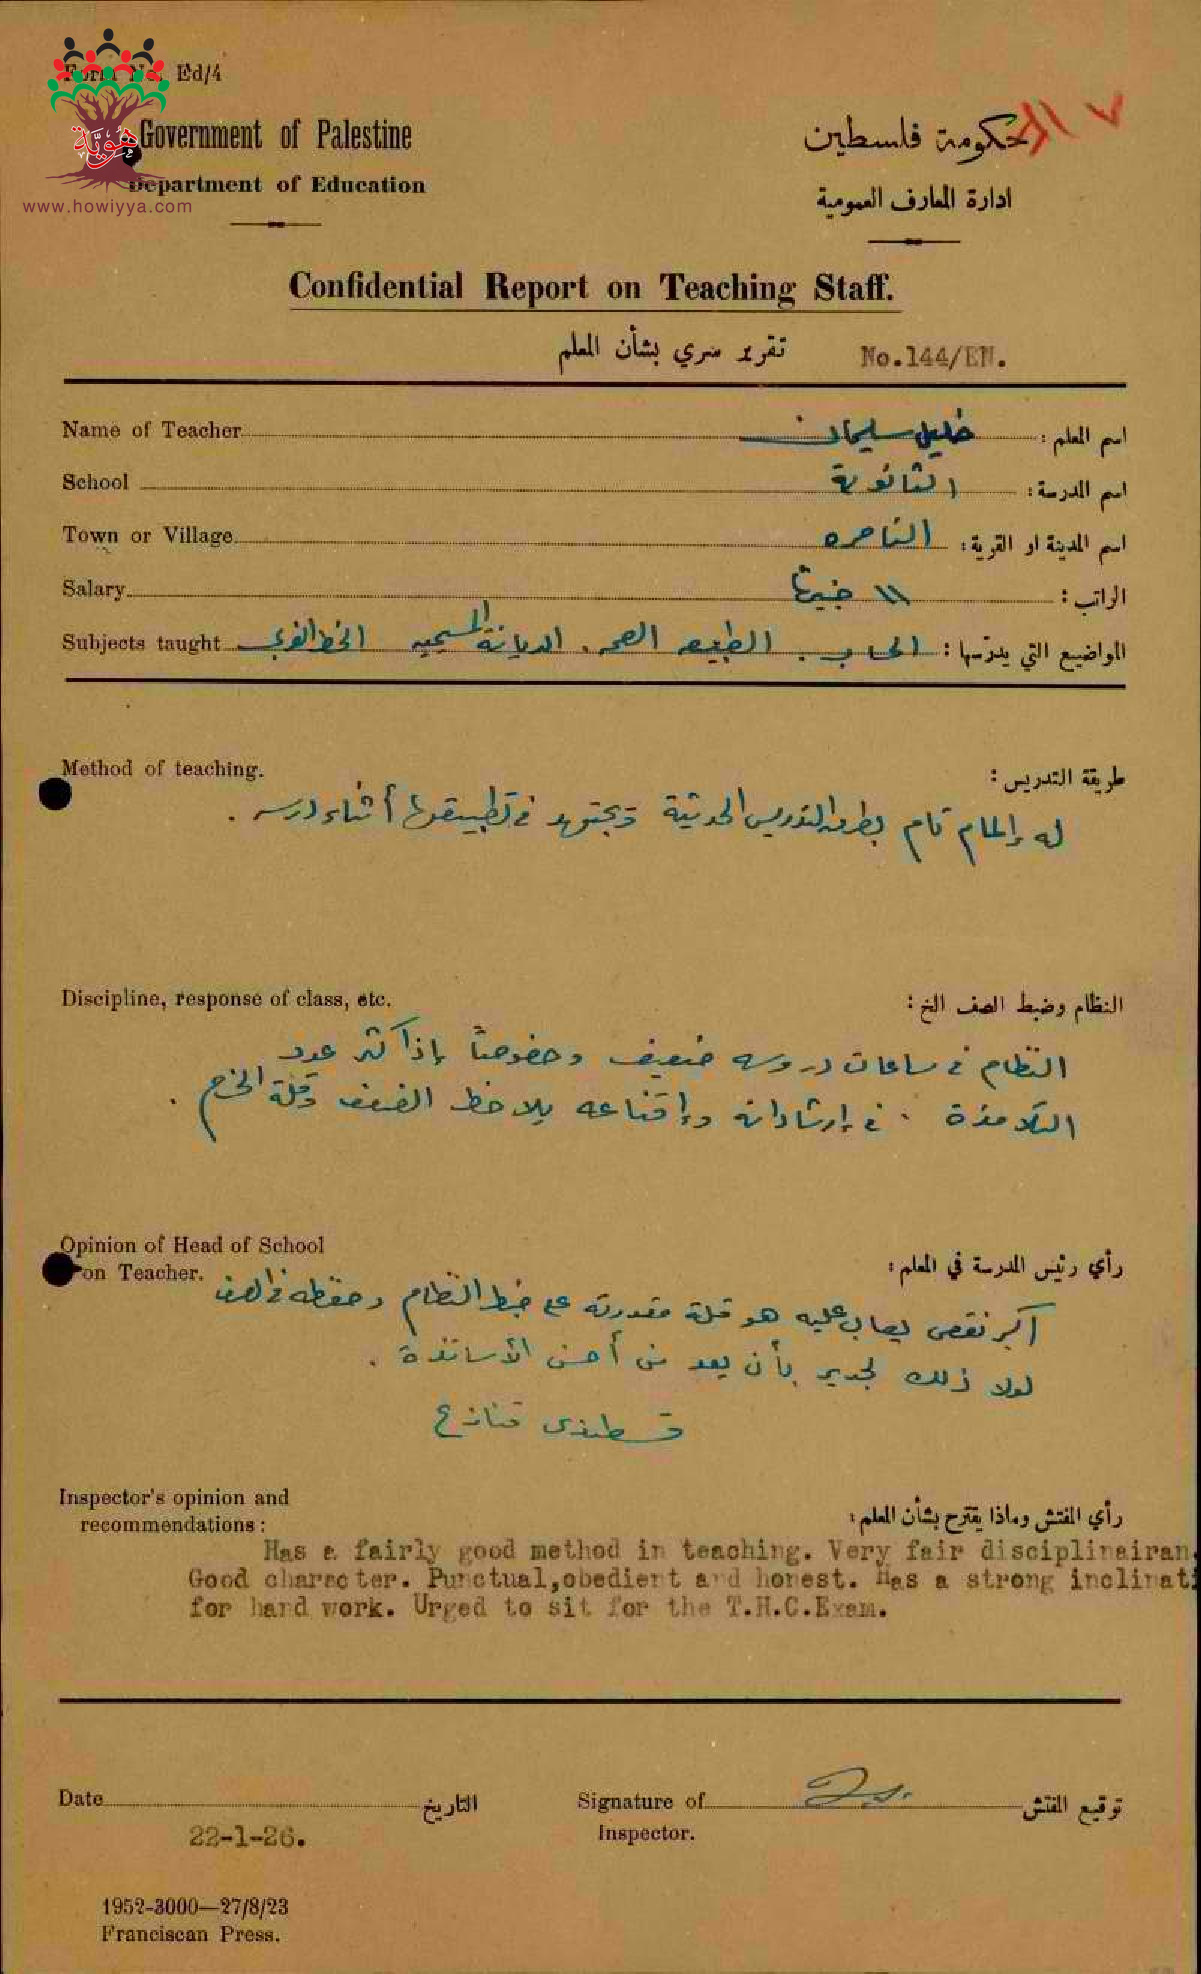 Form No. Ed/4
هُوِيَّة
www.howiyya.com
Government of Palestine
حكومة فلسطين
Department of Education
ادارة المعارف العمومية
Confidential Report on Teaching Staff.
تقرير سري بشأن المعلم
No.144/EN.
Name of Teacher خليل سليمان اسم المعلم :
School الثانوية اسم المدرسة :
Town or Village الناصره اسم المدينة او القرية :
Salary ١١ جنيهًا الراتب :
Subjects taught الحساب . الطبيعه الصحه . الديانة المسيحيه الخط العربي المواضيع التي يدرّسها :
Method of teaching. طريقة التدريس :
له إلمام تام بطرق التدريس الحديثة ويجتهد في تطبيقها أثناء درسه .
Discipline, response of class, etc. النظام وضبط الصف الخ :
النظام في ساعات دروسه ضعيف وخصوصاً إذا كثر عدد
التلامذة . في إرشاداته وإقناعه يلاحظ الضعف وقلة الحزم .
Opinion of Head of School
on Teacher. رأي رئيس المدرسة في المعلم :
أكبر نقص يعاب عليه هو قلة مقدرته على ضبط النظام وحفظه في الصف
لولا ذلك لجدير بأن يعد من أحسن الأساتذة .
قسطندي قنازع
Inspector's opinion and
recommendations : رأي المفتش وماذا يقترح بشأن المعلم :
Has a fairly good method in teaching. Very fair disciplinairan.
Good character. Punctual,obedient and honest. Has a strong inclinati
for hard work. Urged to sit for the T.H.C.Exam.
Date التاريخ
22-1-26.
Signature of
Inspector. توقيع المفتش
1952-3000—27/8/23
Franciscan Press.